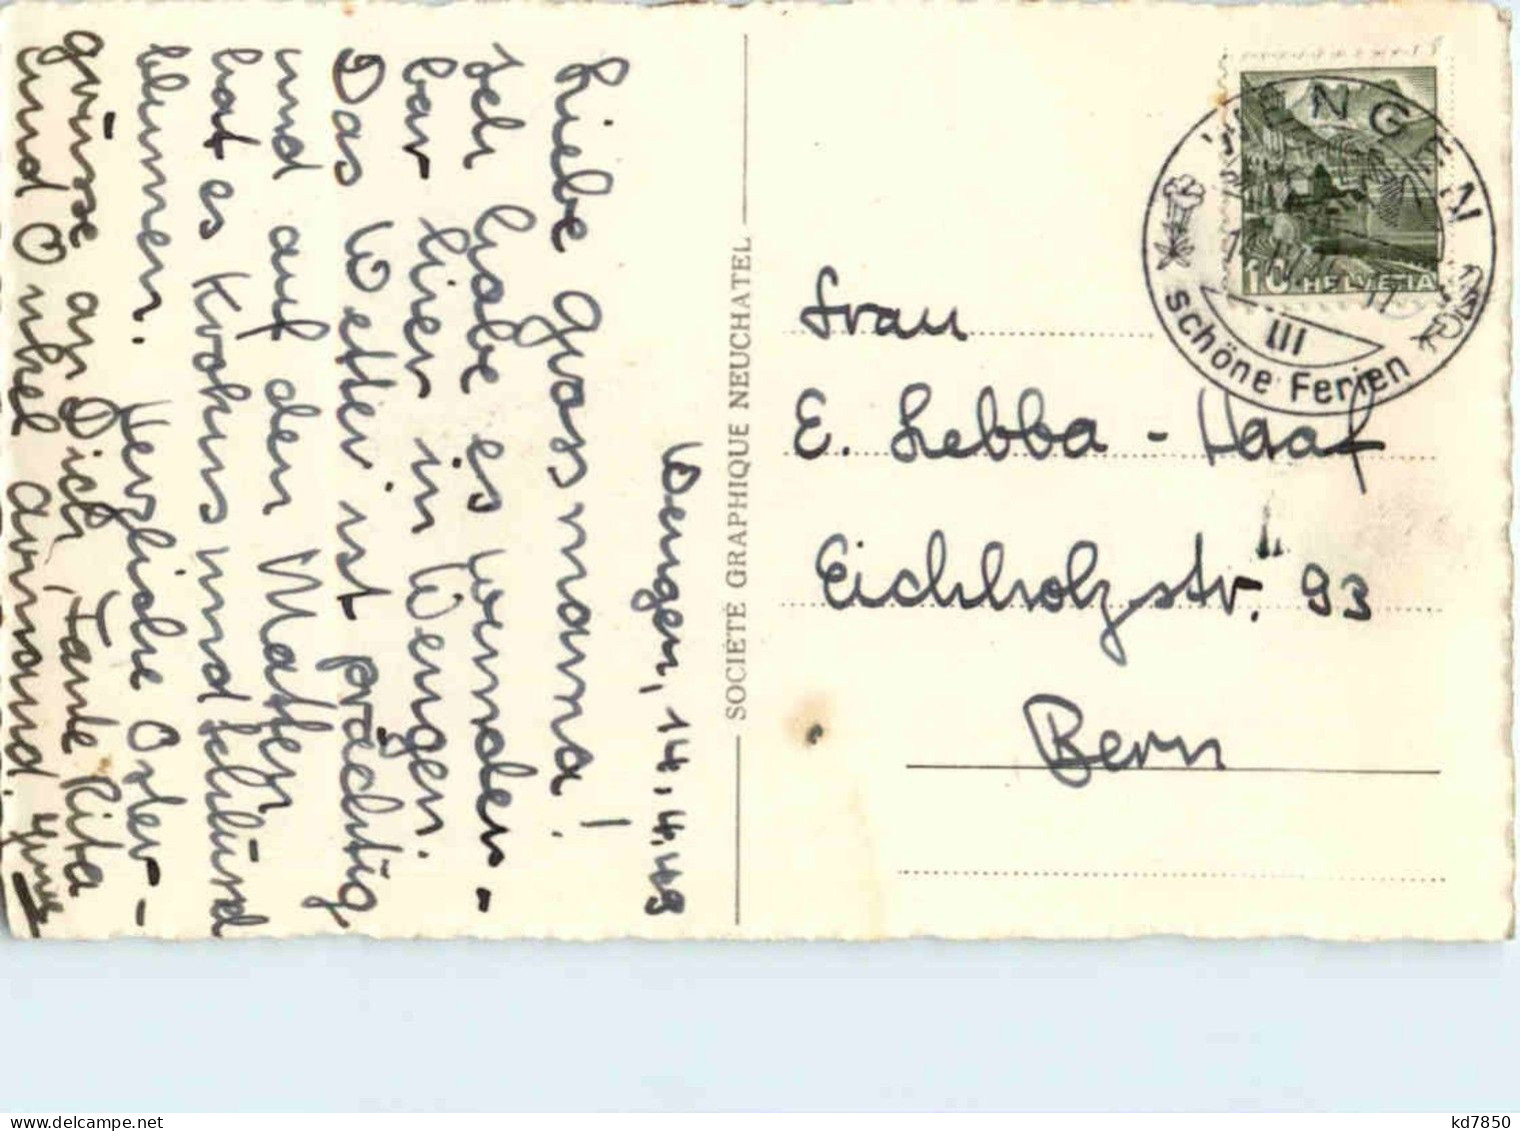 Wengen, 14.4.49
Liebe Grossmama!
Ich habe es wunder-
bar hier in Wengen.
Das Wetter ist prächtig
und auf den Matten
hat es Krokus und Schlüssel
blumen. Herzliche Oster-
grüsse an Dich, Tante Rita
und Onkel Armand.
SOCIÉTÉ GRAPHIQUE NEUCHATEL
WENGEN
10 HELVETIA
III
schöne Ferien
Frau
E. Lebba-Haaf
Eichholzstr. 93
Bern
www.delcampe.net
kd7850